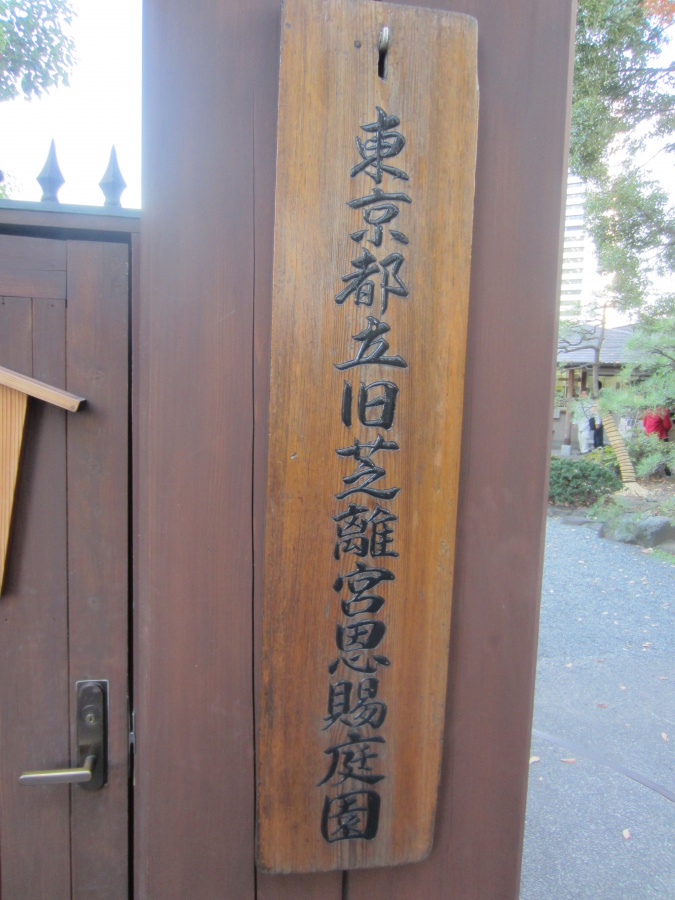 東京都立旧芝離宮恩賜庭園